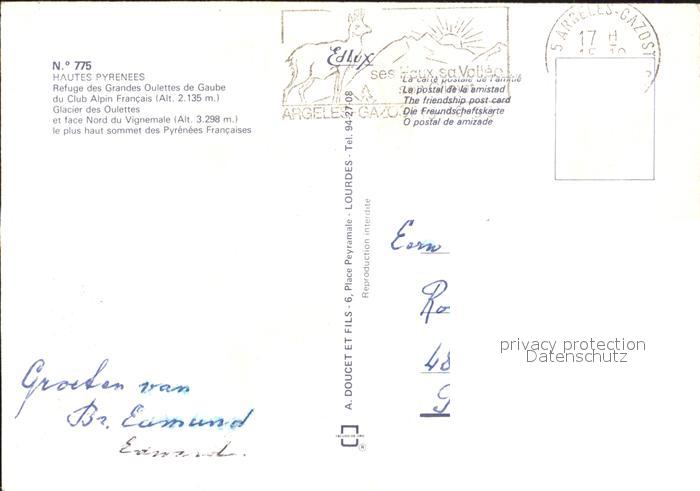 N.º 775
HAUTES PYRENEES
Refuge des Grandes Oulettes de Gaube
du Club Alpin Français (Alt. 2.135 m.)
Glacier des Oulettes
et face Nord du Vignemale (Alt. 3.298 m.)
le plus haut sommet des Pyrénées Françaises
Edlux
ses Eaux, sa Vallée
ARGELES-GAZOST
La carte postale de l'amitié
La postal de la amistad
The friendship post card
Die Freundschaftskarte
O postal de amizade
ARGELES-GAZOST
17 H
A. DOUCET ET FILS - 6, Place Peyramale - LOURDES - Tel. 94-27-08
Reproduction interdite
Eerw
Ro
48
G
privacy protection
Datenschutz
Groeten van
Br. Edmund
Edmund.